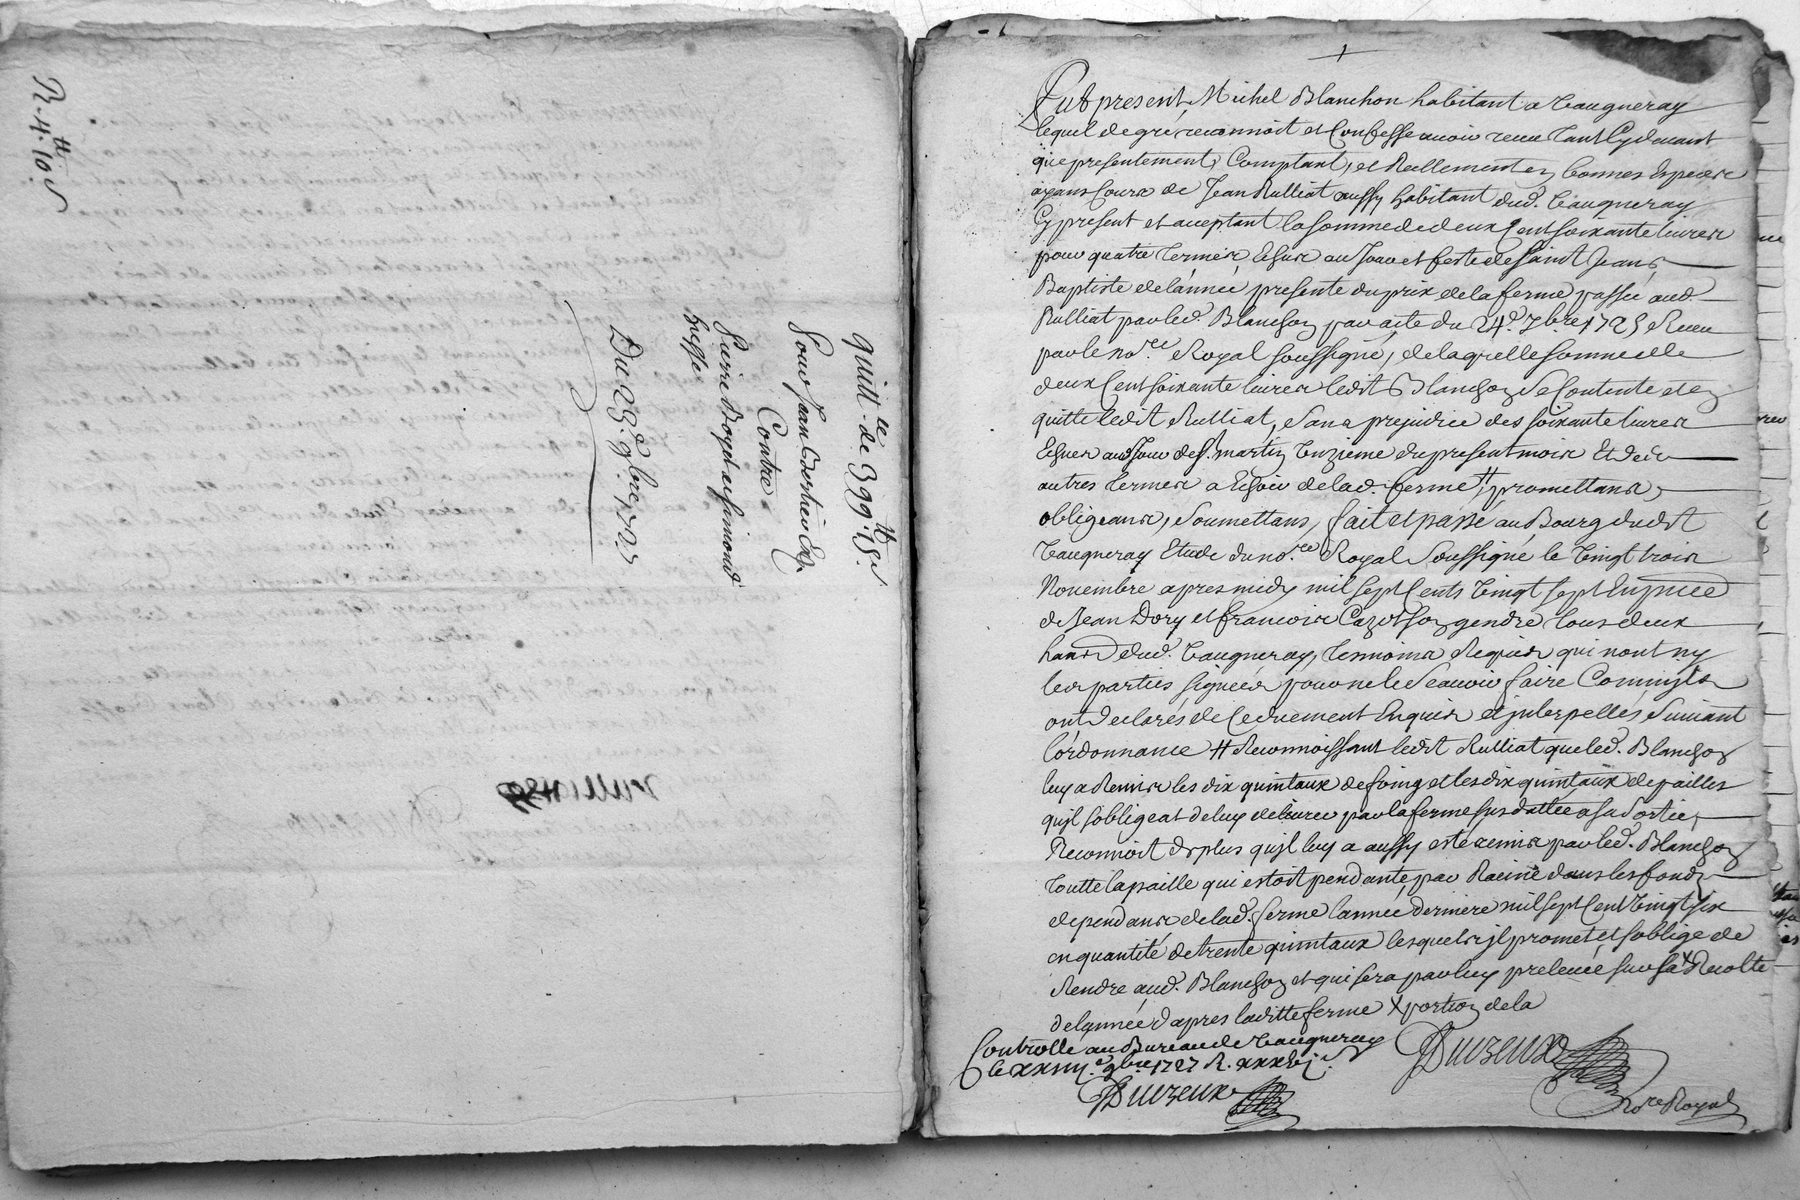 R. 4.tt 10 s
quitt.ce de 399.tt 15.s
Pour Jean
Contre
Pierre
Du 23.e 9bre 1727
Fut present Michel Blanchon habitant a Vaugneray
lequel de gré reconnoit et Confesse avoir receu tant Cy devant
que presentement, Comptant, et Reellement en bonnes Especes
ayans Cours de Jean Rulliat aussy habitant dud. Vaugneray
Cy present et aceptant la somme de deux Cent soixante livres
pour quatre termes Echus au Jour et feste de saint Jean
Baptiste de l'année presente du prix de la ferme passée aud.
Rulliat par led. Blanchon par acte du 24.e 7bre 1725 Receu
par le no.re Royal soussigné, de laquelle somme de
deux Cent soixante livres ledit Blanchon se Contente et en
quitte ledit Rulliat, sans prejudice des soixante livres
Echues au Jour de s.t martin Unzieme du present mois Et des
autres termes a Echoir de lad. ferme, # promettans
obligeans, soumettans, fait et passé au Bourg dudit
Vaugneray Etude du no.re Royal soussigné le Vingt trois
Novembre apres midy mil sept Cents Vingt sept En p.nce
de Jean Dory et francois Cazot son gendre tous deux
hans dud. Vaugneray, tesmoins Requis qui n'ont ny
les parties signées pour ne le sçavoir faire Comm'ils
ont declarés de Ce duement Enquis et interpellés suivant
l'ordonnance # Reconnoissant ledit Rulliat que led. Blanchon
luy a Remis les dix quintaux de foing et les dix quintaux de pailles
qu'jl s'obligeat de luy delivrer par la ferme sus dattée a sa sortie,
Reconnoit de plus qu'jl luy a aussy esté remis par led. Blanchon
toutte la paille qui estoit pendante, par Racine dans les fonds
dependans de lad. ferme l'année derniere mil sept Cent Vingt six
en quantité de trente quintaux lesquels jl promet et s'oblige de
Rendre aud. Blanchon et qui sera par luy prelevée sur sa X Recolte
de l'année d'apres laditte ferme X portion de la
Controllé au Bureau de Vaugneray
le xxiiij.e 9bre 1727 R.
Duvzeux
Duvzeux
No.re Royal